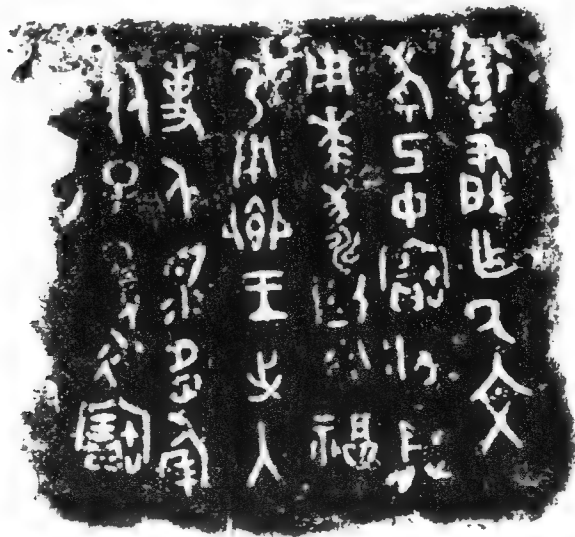 衛肇乍厥文
考己中寶𩰬鼎
用𠦪壽匄永福
乃用鄉王出入
事人眔多倗
友子孫永寶